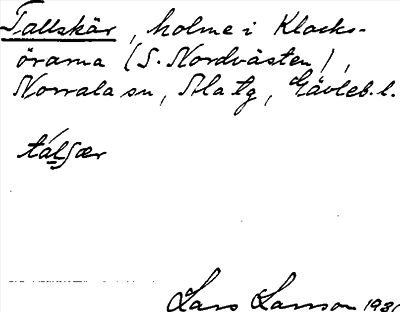 Tallskär, holme i Klacks-
örarna (S. Nordvästen),
Norrala sn, Ala tg, Gävleb. l.
tálʃær
Lars Larsson 193